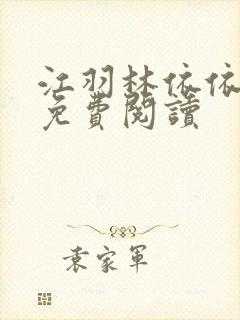 江羽林依依
免費閱讀
袁家軍